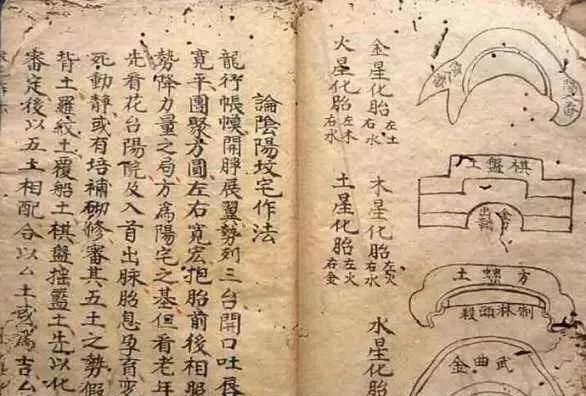 棋盤土
方螺土
武曲金
水星化胎
木星化胎 左火右水
土星化胎 左火右金
金星化胎 左土右水
火星化胎 左木右水
論陰陽坟宅作法
龍行帳幙開睜展翼勢列三台開口吐唇
寬平團聚方圓左右寬宏抱胎前後相照
勢降力量之局方為陽宅之基但看老年
先看花台陽院及入首出脉胎息孕育变
死動靜或有培補砌修審其五土之勢假
背土羅紋土覆船土棋盤搖籃土生以化
審定後以五土相配合以厶土或為吉厶